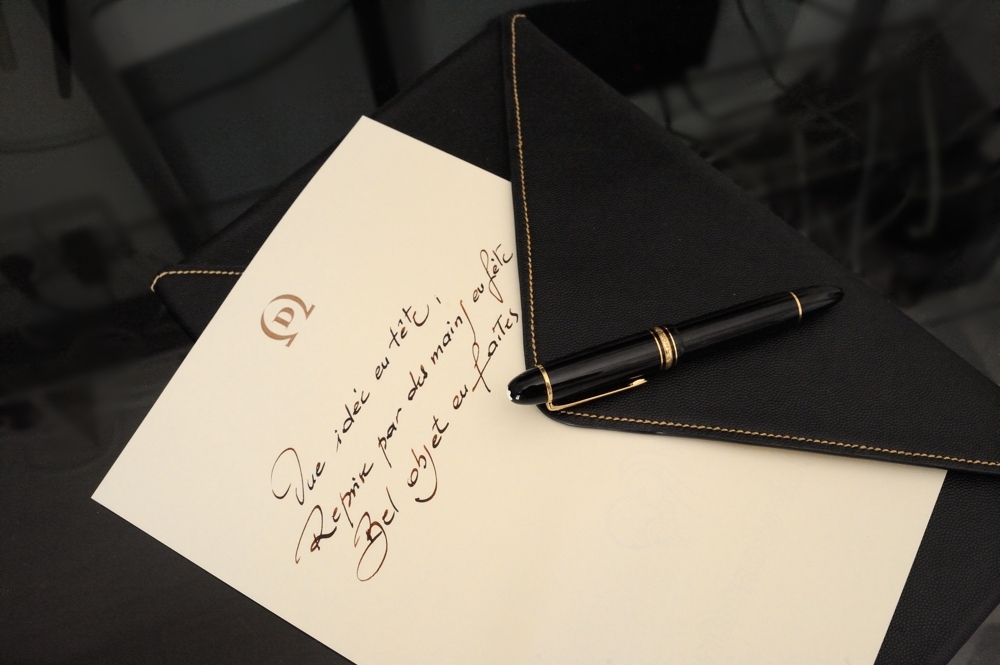 D
Une idée en tête,
Reprise par des mains en fête
Bel objet en faites